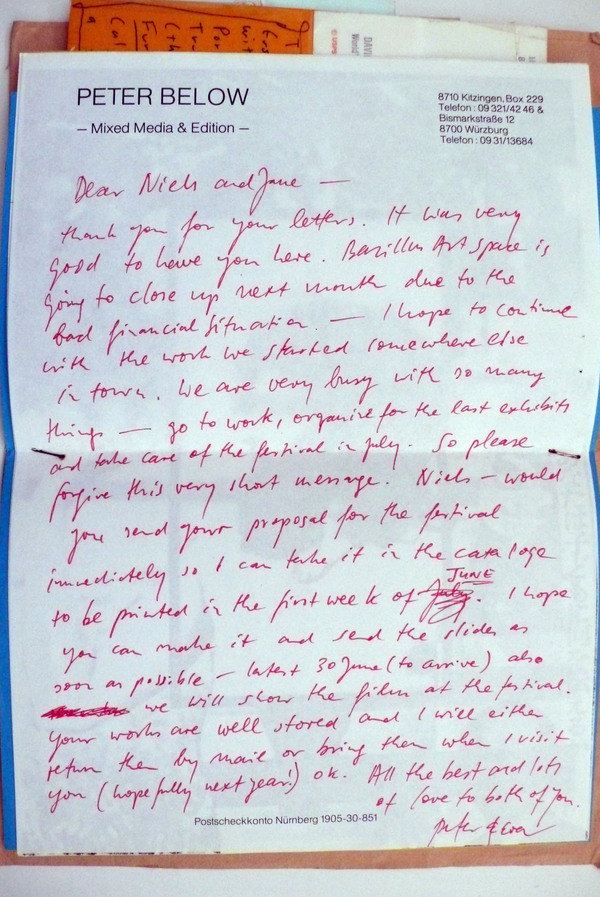 PETER BELOW
– Mixed Media & Edition –
8710 Kitzingen, Box 229
Telefon : 09 321/42 46 &
Bismarkstraße 12
8700 Würzburg
Telefon : 09 31/13684
Dear Niels and Jane —
thank you for your letters. It was very
good to have you here. Bazillus Art space is
going to close up next month due to the
bad financial situation. — I hope to continue
with the work we started somewhere else
in town. We are very busy with so many
things — go to work, organize for the last exhibits
and take care of the festival in july. So please
forgive this very short message. Niels – would
you send your proposal for the festival
immediately so I can take it in the cataloge
JUNE
to be printed in the first week of july. I hope
you can make it and send the slides as
soon as possible – latest 30 June (to arrive) also
we will show the film at the festival.
Your works are well stored and I will either
return them by mail or bring them when I visit
you (hopefully next year!) ok. All the best and lots
of love to both of you.
Peter &
Postscheckkonto Nürnberg 1905-30-851